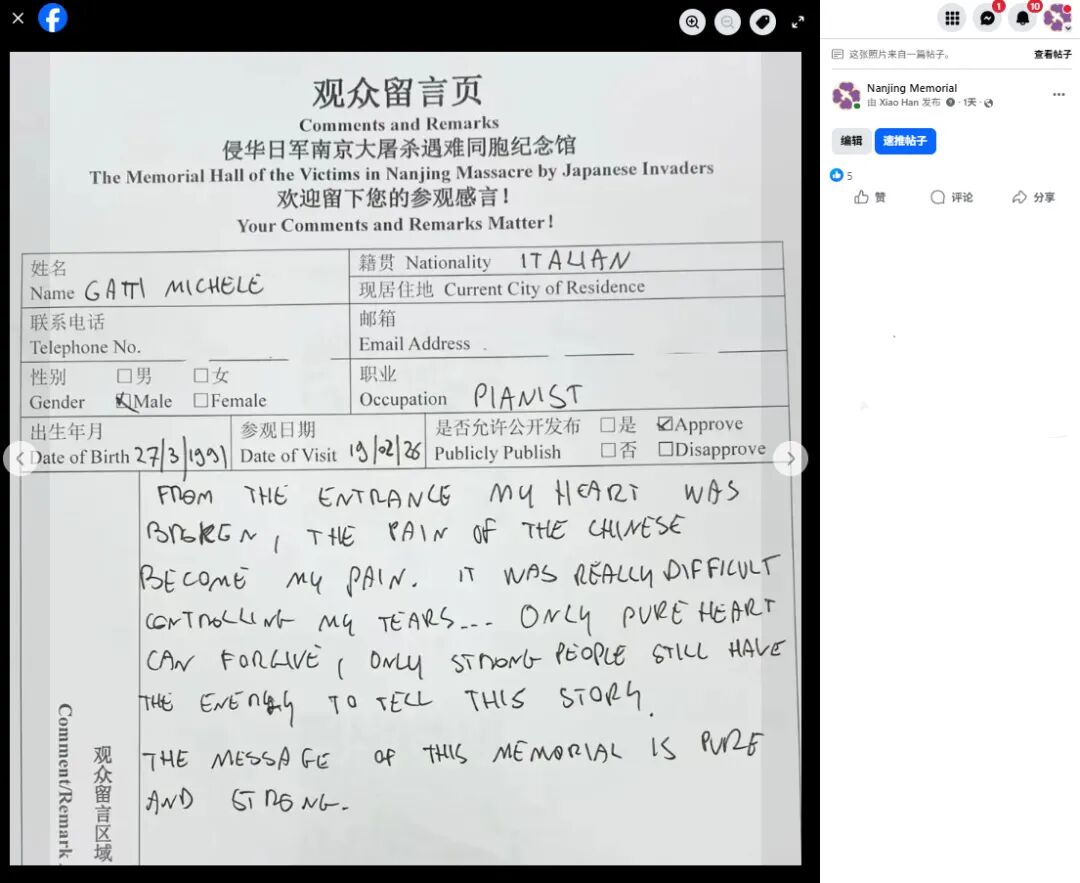 观众留言页
Comments and Remarks
侵华日军南京大屠杀遇难同胞纪念馆
The Memorial Hall of the Victims in Nanjing Massacre by Japanese Invaders
欢迎留下您的参观感言！
Your Comments and Remarks Matter!
姓名
Name GATTI MICHELE
籍贯 Nationality ITALIAN
现居住地 Current City of Residence
联系电话
Telephone No.
邮箱
Email Address
性别 □男 □女
Gender ☑Male □Female
职业
Occupation PIANIST
出生年月
Date of Birth 27/3/1991
参观日期
Date of Visit 19/02/26
是否允许公开发布 □是 ☑Approve
Publicly Publish □否 □Disapprove
FROM THE ENTRANCE MY HEART WAS
BROKEN, THE PAIN OF THE CHINESE
BECOME MY PAIN. IT WAS REALLY DIFFICULT
CONTROLLING MY TEARS... ONLY PURE HEART
CAN FORGIVE, ONLY STRONG PEOPLE STILL HAVE
THE ENERGY TO TELL THIS STORY.
THE MESSAGE OF THIS MEMORIAL IS PURE
AND STRONG.
观众留言区域
Comment/Remark
1
10
这张照片来自一篇帖子。 查看帖子
Nanjing Memorial
由 Xiao Han 发布 · 1天 ·
编辑 速推帖子
5
赞 评论 分享